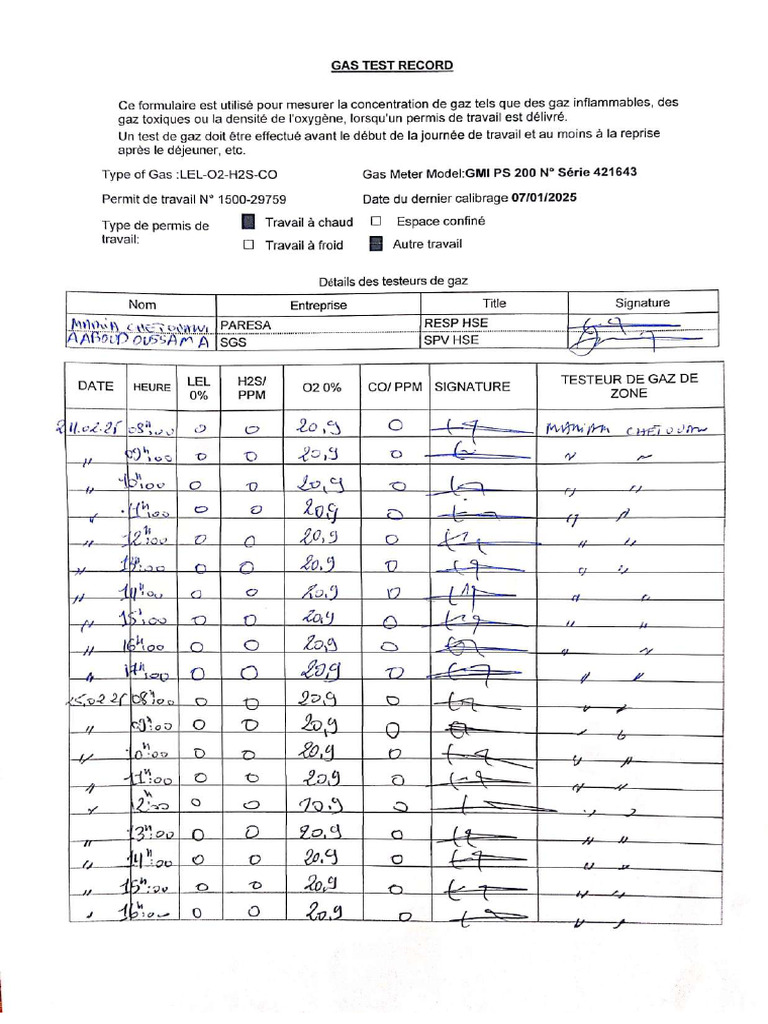 GAS TEST RECORD
Ce formulaire est utilisé pour mesurer la concentration de gaz tels que des gaz inflammables, des
gaz toxiques ou la densité de l'oxygène, lorsqu'un permis de travail est délivré.
Un test de gaz doit être effectué avant le début de la journée de travail et au moins à la reprise
après le déjeuner, etc.
Type of Gas :LEL-O2-H2S-CO Gas Meter Model:GMI PS 200 N° Série 421643
Permit de travail N° 1500-29759 Date du dernier calibrage 07/01/2025
Type de permis de travail: Travail à chaud ☐ Espace confiné
☐ Travail à froid Autre travail
Détails des testeurs de gaz
Nom Entreprise Title Signature
PARESA RESP HSE
AABOUD OUSSAMA SGS SPV HSE
DATE HEURE LEL 0% H2S/ PPM O2 0% CO/ PPM SIGNATURE TESTEUR DE GAZ DE ZONE
24.02.25 08h:00 0 0 20,9 0
" 09h:00 0 0 20,9 0
" 10h:00 0 0 20,9 0 " "
" 11h:00 0 0 20,9 0 " "
" 12h:00 0 0 20,9 0 " "
" 0 0 20,9 0 " "
" 14h:00 0 0 20,9 0 " "
" 15h:00 0 0 20,9 0 " "
" 16h:00 0 0 20,9 0 " "
" 17h:00 0 0 20,9 0 " "
25.02.25 08h:00 0 0 20,9 0 " "
" 09h:00 0 0 20,9 0
" 10h:00 0 0 20,9 0 " "
" 11h:00 0 0 20,9 0 " "
" 0 0 0
" 13h:00 0 0 20,9 0 " "
" 14h:00 0 0 20,9 0 " "
" 15h:00 0 0 20,9 0 " "
" 16h:00 0 0 20,9 0 " "